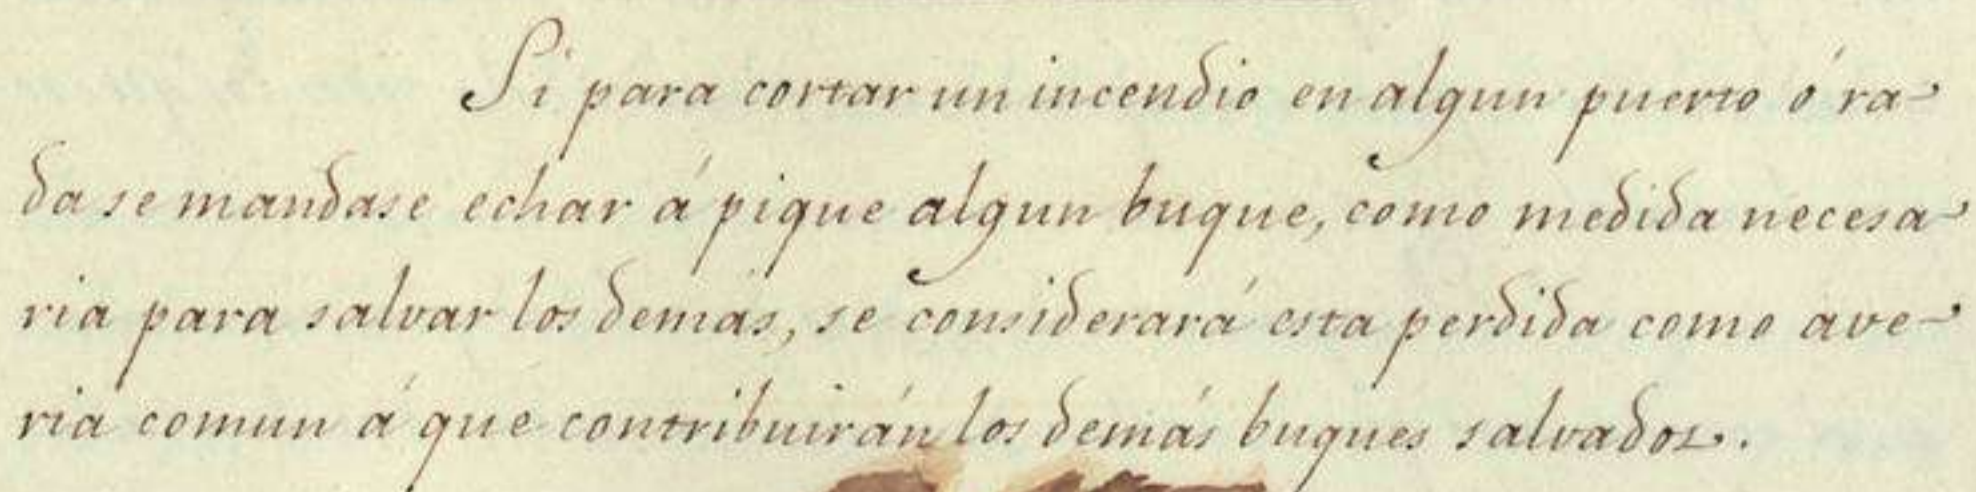 Si para cortar un incendio en algun puerto ó ra-
da se mandase echar á pique algun buque, como medida necesa-
ria para salvar los demás, se considerará esta perdida como ave-
ria comun á que contribuirán los demás buques salvados.